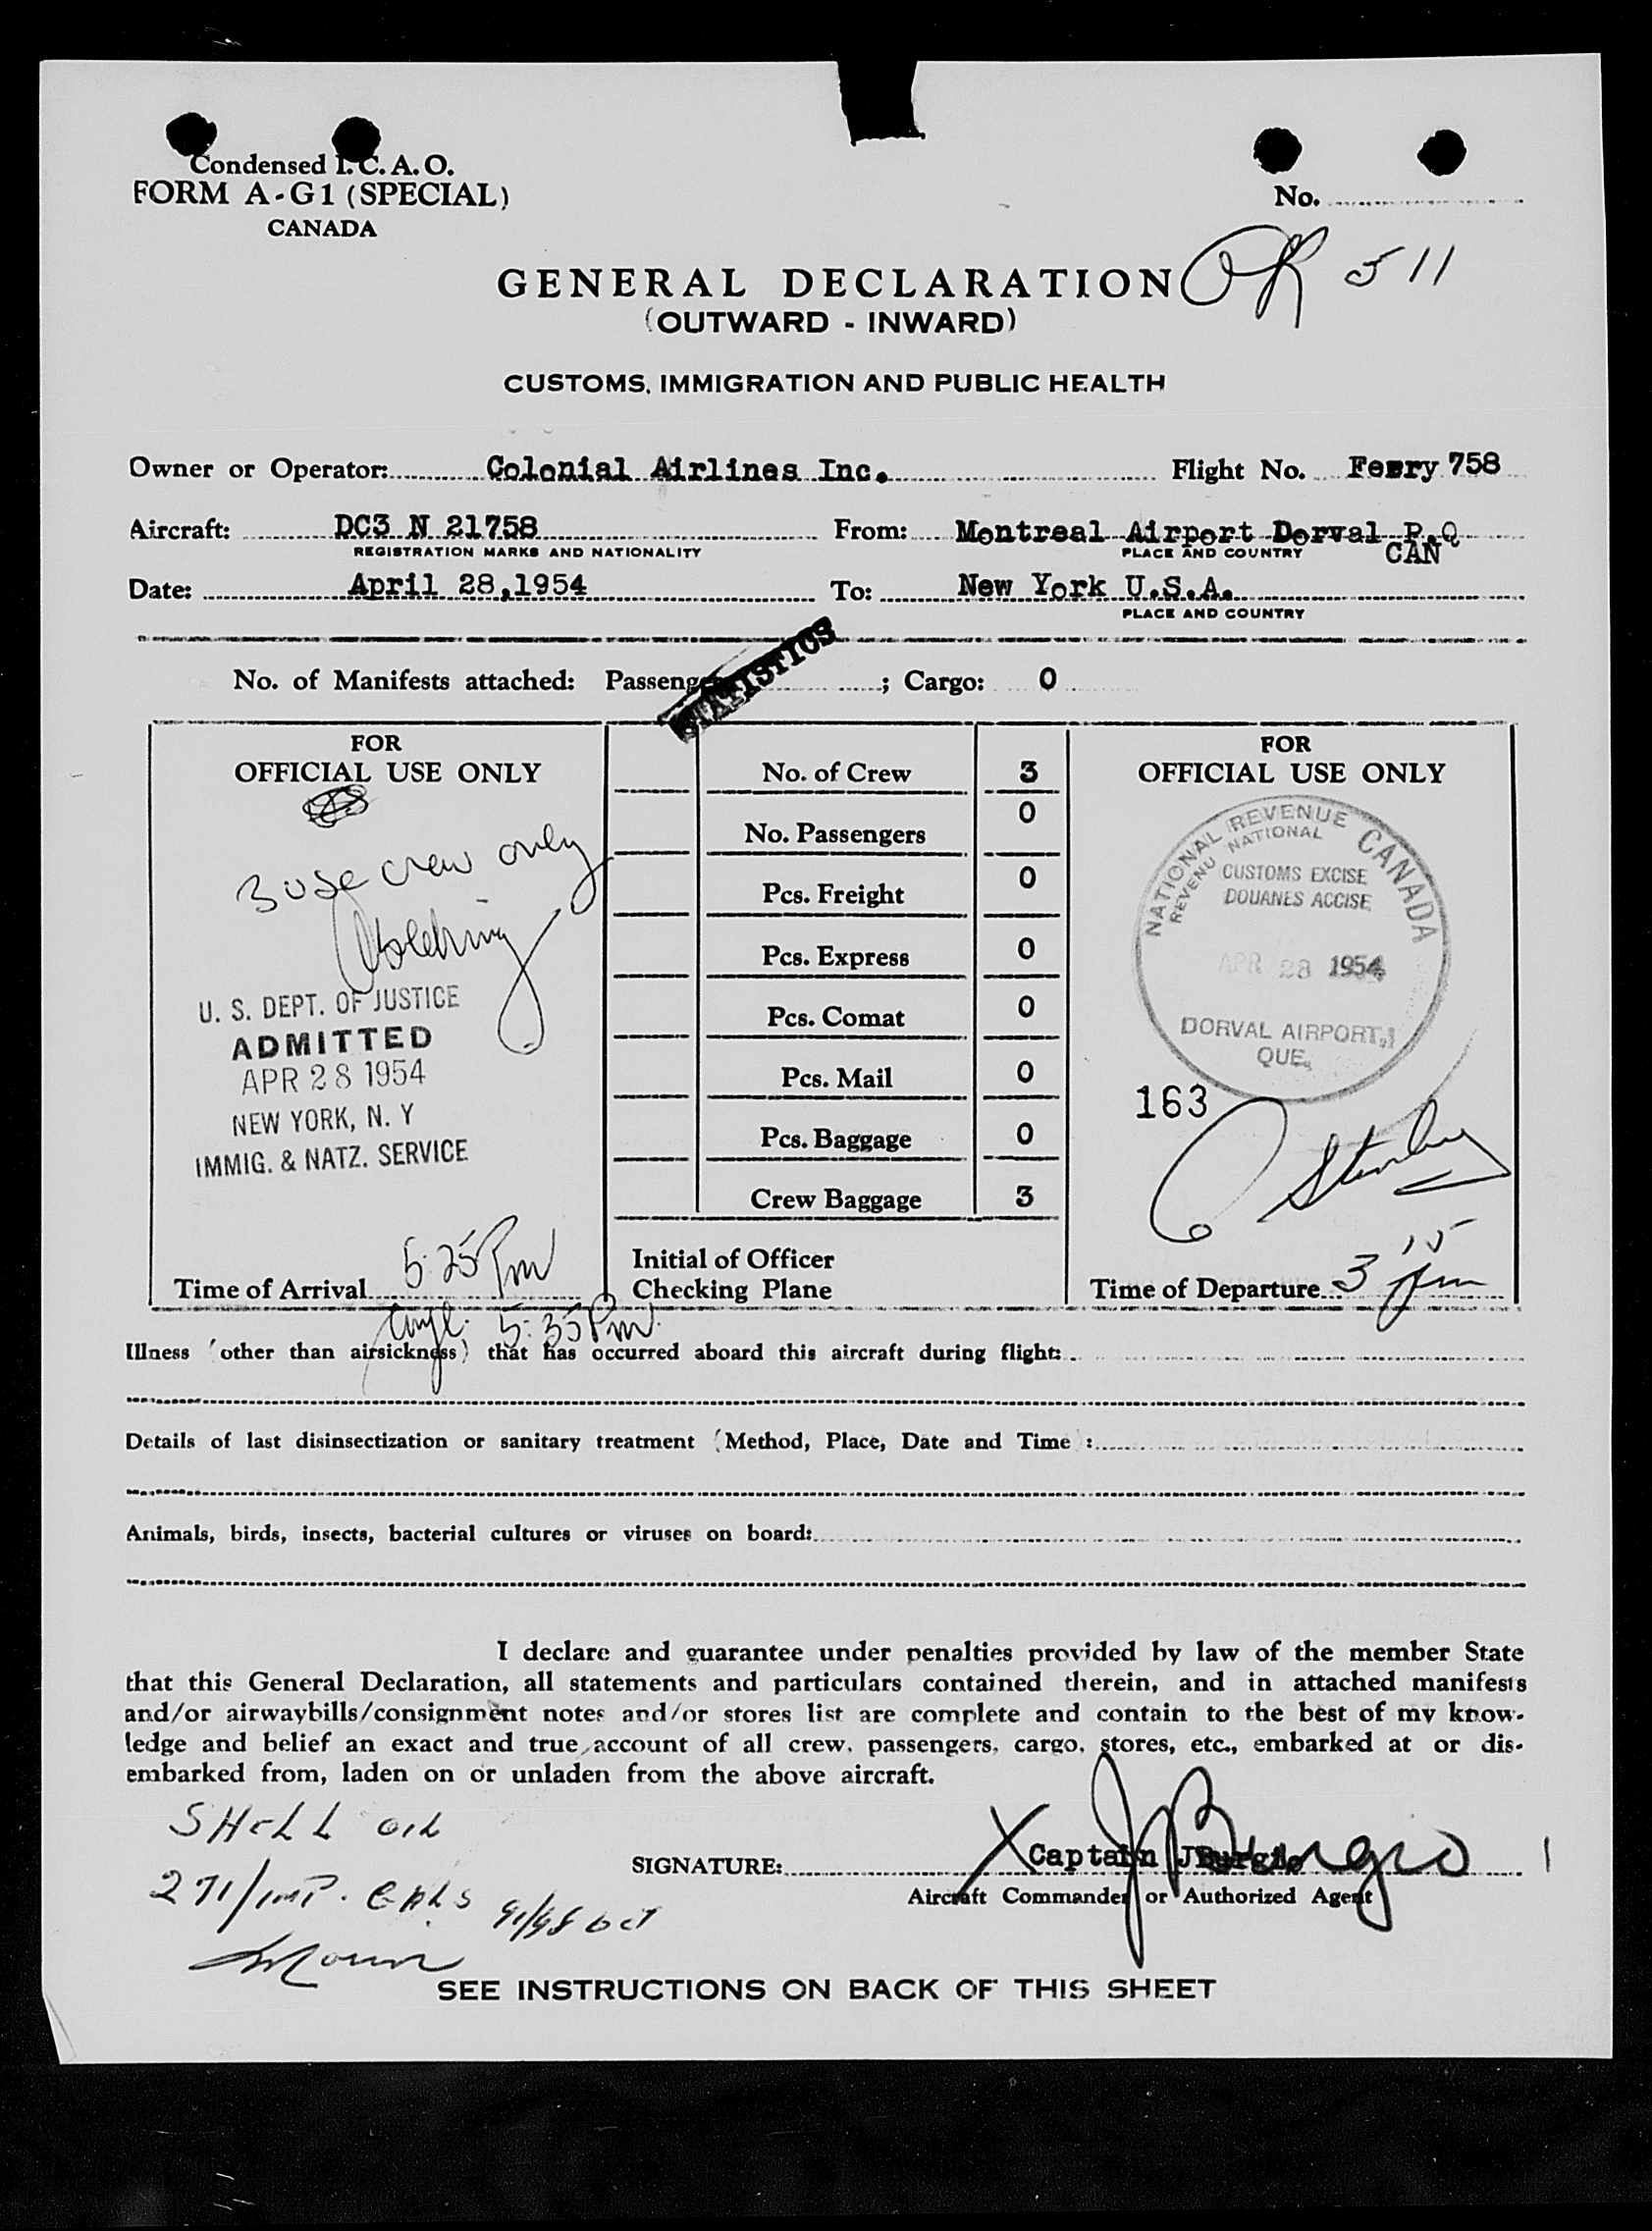 Condensed I.C.A.O.
FORM A-G1 (SPECIAL)
CANADA
No.
OK 511
GENERAL DECLARATION
(OUTWARD - INWARD)
CUSTOMS, IMMIGRATION AND PUBLIC HEALTH
Owner or Operator: Colonial Airlines Inc. Flight No. Ferry 758
Aircraft: DC3 N 21758 From: Montreal Airport Dorval P.Q
REGISTRATION MARKS AND NATIONALITY PLACE AND COUNTRY CAN
Date: April 28,1954 To: New York U.S.A.
PLACE AND COUNTRY
STATISTICS
No. of Manifests attached: Passenger ; Cargo: 0
FOR
OFFICIAL USE ONLY
3 USc crew only
U. S. DEPT. OF JUSTICE
ADMITTED
APR 28 1954
NEW YORK, N. Y
IMMIG. & NATZ. SERVICE
Time of Arrival 5:25 Pm
5:35 Pm
No. of Crew 3
No. Passengers 0
Pcs. Freight 0
Pcs. Express 0
Pcs. Comat 0
Pcs. Mail 0
Pcs. Baggage 0
Crew Baggage 3
Initial of Officer
Checking Plane
FOR
OFFICIAL USE ONLY
NATIONAL REVENUE CANADA
REVENU NATIONAL
CUSTOMS EXCISE
DOUANES ACCISE
APR 28 1954
DORVAL AIRPORT,
QUE.
163
Time of Departure 3 15 pm
Illness (other than airsickness) that has occurred aboard this aircraft during flight:
Details of last disinsectization or sanitary treatment (Method, Place, Date and Time):
Animals, birds, insects, bacterial cultures or viruses on board:
I declare and guarantee under penalties provided by law of the member State
that this General Declaration, all statements and particulars contained therein, and in attached manifests
and/or airwaybills/consignment notes and/or stores list are complete and contain to the best of my know-
ledge and belief an exact and true account of all crew, passengers, cargo, stores, etc., embarked at or dis-
embarked from, laden on or unladen from the above aircraft.
SHELL OIL
271/IMP. GALS 91/98 OCT
SIGNATURE: X Captain JBurgio
JBurgio
Aircraft Commander or Authorized Agent
SEE INSTRUCTIONS ON BACK OF THIS SHEET